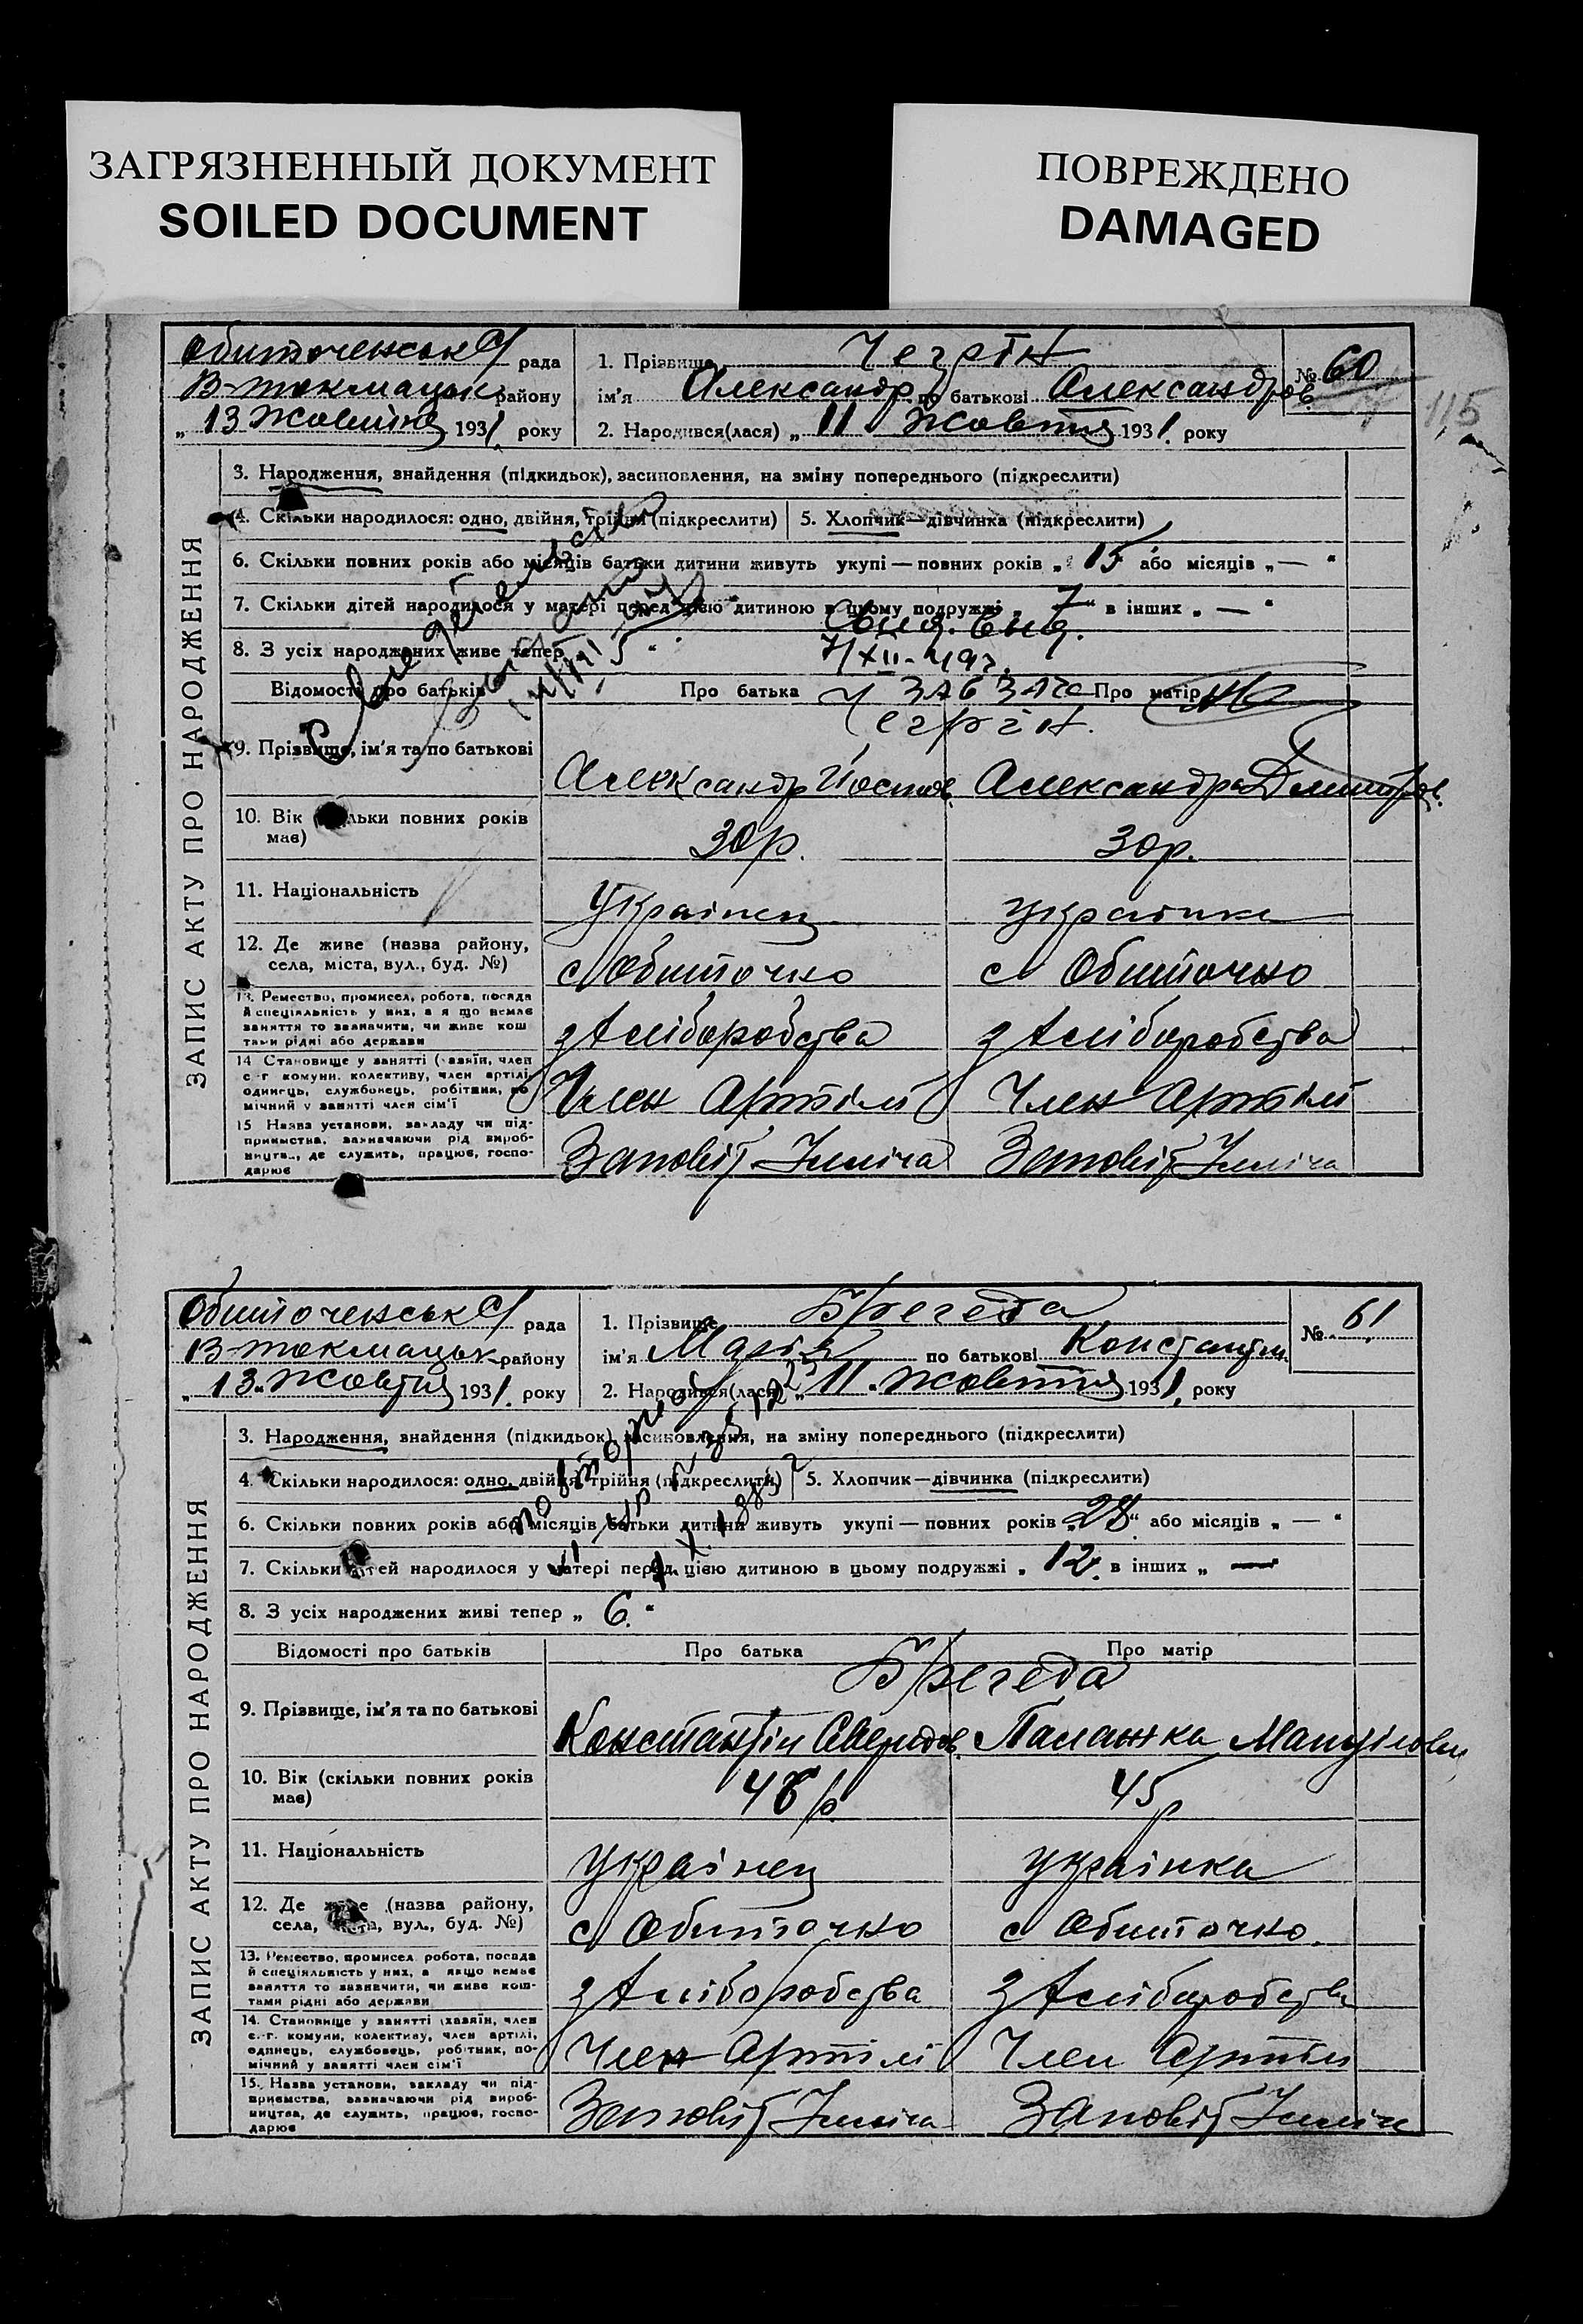 ЗАГРЯЗНЕННЫЙ ДОКУМЕНТ
SOILED DOCUMENT
ПОВРЕЖДЕНО
DAMAGED
Обиточенськ С/ рада
В-токмацьк району
„ 13 Жовтня 1931. року
1. Прізвище Чегрін
ім'я Александр по батькові Александров.
№ 60
2. Народився(лася) „ 11 Жовтня 1931. року
115
ЗАПИС АКТУ ПРО НАРОДЖЕННЯ
3. Народження, знайдення (підкидьок), засиновлення, на зміну попереднього (підкреслити)
4. Скільки народилося: одно, двійня, трійня (підкреслити)
5. Хлопчик—дівчинка (підкреслити)
6. Скільки повних років або місяців батьки дитини живуть укупі — повних років „ 15 або місяців „ — “
7. Скільки дітей народилося у матері перед цією дитиною в цьому подружжі „ 7 “ в інших „ — “
8. З усіх народжених живе тепер „ 5 “
Відомості про батьків
Про батька
Про матір
Чегрін.
9. Прізвище, ім'я та по батькові
Александр Йосипов.
Александра Дмитров.
10. Вік (скільки повних років має)
30р.
30р.
11. Національність
Українец
українка
12. Де живе (назва району, села, міста, вул., буд. №)
с Обиточно
с Обиточно
13. Ремество, промисел, робота, посада й спеціяльність у них, а я що немає заняття то зазначити, чи живе коштами рідні або держави
з хліборобства
з хліборобства
14 Становище у занятті (хазяїн, член с.-г. комуни, колективу, член артілі, одинець, службовець, робітник, помічний у занятті член сім'ї
Член Артілі
Член Артілі
15 Назва установи, закладу чи підприємства, зазначаючи рід виробництва, де служить, працює, господарює
Заповіт Ілліча
Заповіт Ілліча
Обиточенськ С/ рада
В-токмацьк району
„ 13 „ Жовтня 1931. року
1. Прізвище Брегеда
ім'я Марія по батькові Константин
№ 61
2. Народився(лася) „ 11 „ Жовтня 1931. року
ЗАПИС АКТУ ПРО НАРОДЖЕННЯ
3. Народження, знайдення (підкидьок), засиновлення, на зміну попереднього (підкреслити)
4. Скільки народилося: одно, двійня, трійня (підкреслити)
5. Хлопчик—дівчинка (підкреслити)
6. Скільки повних років або місяців батьки дитини живуть укупі — повних років „28“ або місяців „ — “
7. Скільки дітей народилося у матері перед цією дитиною в цьому подружжі „ 12. в інших „ —
8. З усіх народжених живі тепер „ 6. “
Відомості про батьків
Про батька
Про матір
Брегеда
9. Прізвище, ім'я та по батькові
Константін Свиридов.
Паланжка
10. Вік (скільки повних років має)
48р.
45р
11. Національність
українец
українка
12. Де живе (назва району, села, міста, вул., буд. №)
с Обиточно
с Обиточно.
13. Ремество, промисел робота, посада й спеціяльність у них, а якщо немає заняття то зазначити, чи живе коштами рідні або держави
з хліборобства
з хліборобства
14. Становище у занятті (хазяїн, член с.-г. комуни, колективу, член артілі, одинець, службовець, робітник, помічний у занятті член сім'ї
Член Артілі
Член Артілі
15. Назва установи, закладу чи підприємства, зазначаючи рід виробництва, де служить, працює, господарює
Заповіт Ілліча
Заповіт Ілліча